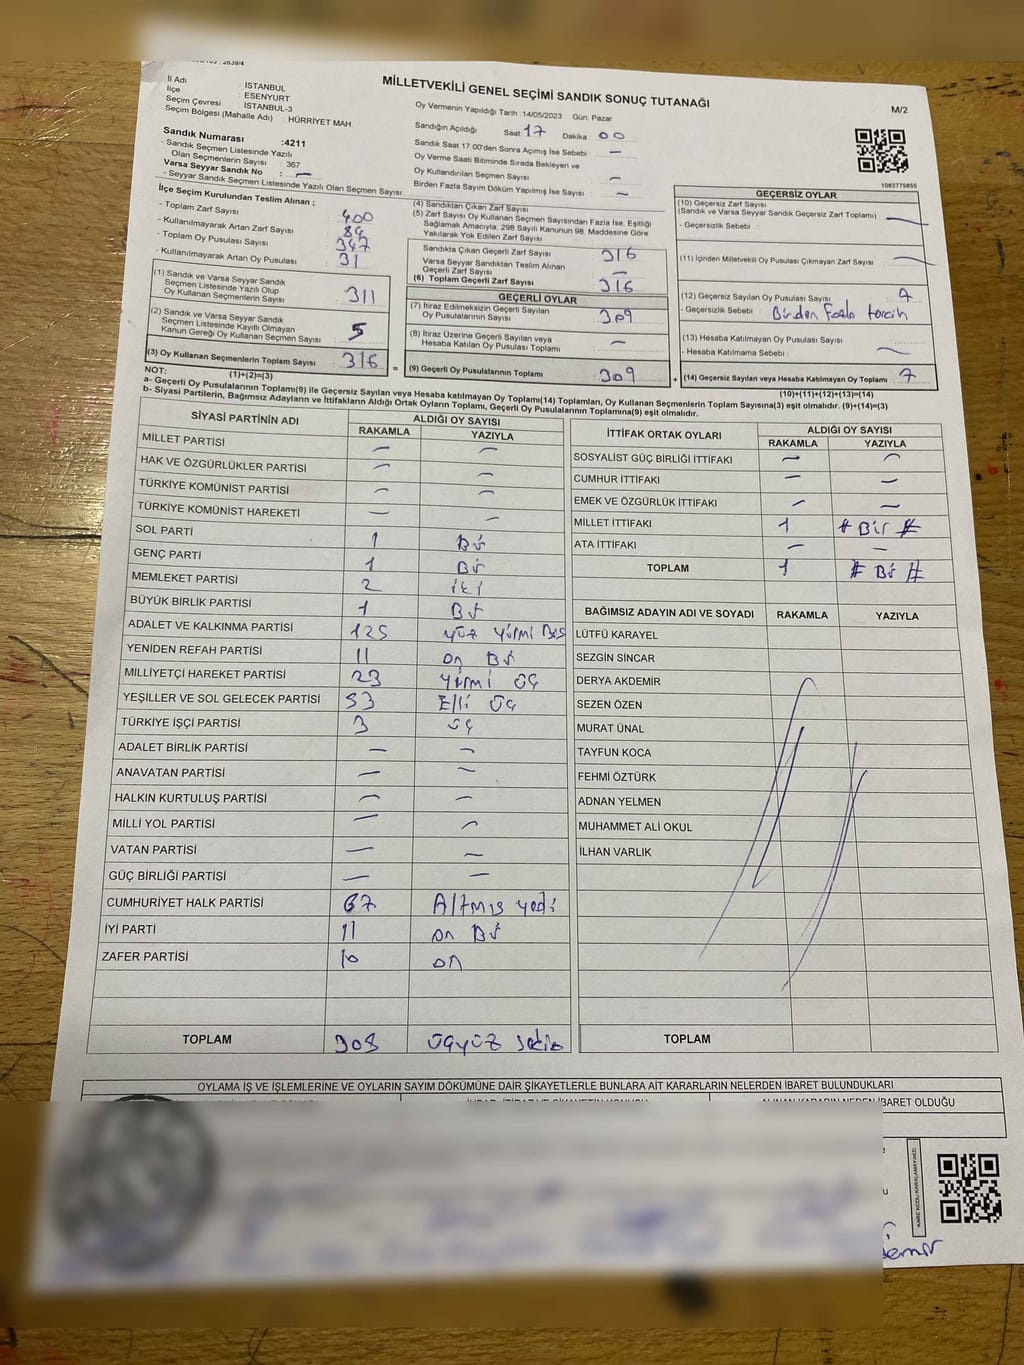 MİLLETVEKİLİ GENEL SEÇİMİ SANDIK SONUÇ TUTANAĞI
M/2
İl Adı : İSTANBUL
İlçe : ESENYURT
Seçim Çevresi : İSTANBUL-3
Seçim Bölgesi (Mahalle Adı) : HÜRRİYET MAH.
Sandık Numarası :4211
- Sandık Seçmen Listesinde Yazılı
Olan Seçmenlerin Sayısı : 367
Varsa Seyyar Sandık No : —
- Seyyar Sandık Seçmen Listesinde Yazılı Olan Seçmen Sayısı
Oy Vermenin Yapıldığı Tarih :14/05/2023 Gün: Pazar
Sandığın Açıldığı Saat 17 Dakika 00
Sandık Saat 17:00'den Sonra Açımış İse Sebebi : —
Oy Verme Saati Bitiminde Sırada Bekleyen ve
Oy Kullandırılan Seçmen Sayısı : —
Birden Fazla Sayım Döküm Yapılmış İse Sayısı : —
1083775855
İlçe Seçim Kurulundan Teslim Alınan ;
- Toplam Zarf Sayısı : 400
- Kullanılmayarak Artan Zarf Sayısı : 84
- Toplam Oy Pusulası Sayısı : 347
- Kullanılmayarak Artan Oy Pusulası : 31
(1) Sandık ve Varsa Seyyar Sandık
Seçmen Listesinde Yazılı Olup
Oy Kullanan Seçmenlerin Sayısı : 311
(2) Sandık ve Varsa Seyyar Sandık
Seçmen Listesinde Kayıtlı Olmayan
Kanun Gereği Oy Kullanan Seçmen Sayısı : 5
(3) Oy Kullanan Seçmenlerin Toplam Sayısı : 316
(1)+(2)=(3)
(4) Sandıktan Çıkan Zarf Sayısı
(5) Zarf Sayısı Oy Kullanan Seçmen Sayısından Fazla İse, Eşitliği
Sağlamak Amacıyla, 298 Sayılı Kanunun 98. Maddesine Göre
Yakılarak Yok Edilen Zarf Sayısı
Sandıkta Çıkan Geçerli Zarf Sayısı : 316
Varsa Seyyar Sandıktan Teslim Alınan
Geçerli Zarf Sayısı : —
(6) Toplam Geçerli Zarf Sayısı : 316
GEÇERLİ OYLAR
(7) İtiraz Edilmeksizin Geçerli Sayılan
Oy Pusulalarının Sayısı : 309
(8) İtiraz Üzerine Geçerli Sayılan veya
Hesaba Katılan Oy Pusulası Toplamı : —
= (9) Geçerli Oy Pusulalarının Toplamı : 309
GEÇERSİZ OYLAR
(10) Geçersiz Zarf Sayısı
(Sandık ve Varsa Seyyar Sandık Geçersiz Zarf Toplamı) : —
- Geçersizlik Sebebi :
(11) İçinden Milletvekili Oy Pusulası Çıkmayan Zarf Sayısı : —
(12) Geçersiz Sayılan Oy Pusulası Sayısı : 7
- Geçersizlik Sebebi : Birden fazla tercih
(13) Hesaba Katılmayan Oy Pusulası Sayısı :
- Hesaba Katılmama Sebebi : —
+ (14) Geçersiz Sayılan veya Hesaba Katılmayan Oy Toplamı : 7
(10)+(11)+(12)+(13)=(14)
NOT:
a- Geçerli Oy Pusulalarının Toplamı(9) ile Geçersiz Sayılan veya Hesaba katılmayan Oy Toplamı(14) Toplamları, Oy Kullanan Seçmenlerin Toplam Sayısına(3) eşit olmalıdır. (9)+(14)=(3)
b- Siyasi Partilerin, Bağımsız Adayların ve İttifakların Aldığı Ortak Oyların Toplamı, Geçerli Oy Pusulalarının Toplamına(9) eşit olmalıdır.
SİYASİ PARTİNİN ADI ALDIĞI OY SAYISI
RAKAMLA YAZIYLA
MİLLET PARTİSİ — —
HAK VE ÖZGÜRLÜKLER PARTİSİ — —
TÜRKİYE KOMÜNİST PARTİSİ — —
TÜRKİYE KOMÜNİST HAREKETİ — —
SOL PARTİ 1 Bir
GENÇ PARTİ 1 Bir
MEMLEKET PARTİSİ 2 iki
BÜYÜK BİRLİK PARTİSİ 1 Bir
ADALET VE KALKINMA PARTİSİ 125 yüz yirmi Beş
YENİDEN REFAH PARTİSİ 11 on Bir
MİLLİYETÇİ HAREKET PARTİSİ 23 yirmi üç
YEŞİLLER VE SOL GELECEK PARTİSİ 53 Elli üç
TÜRKİYE İŞÇİ PARTİSİ 3 üç
ADALET BİRLİK PARTİSİ — —
ANAVATAN PARTİSİ — —
HALKIN KURTULUŞ PARTİSİ — —
MİLLİ YOL PARTİSİ — —
VATAN PARTİSİ — —
GÜÇ BİRLİĞİ PARTİSİ — —
CUMHURİYET HALK PARTİSİ 67 Altmış yedi
İYİ PARTİ 11 on Bir
ZAFER PARTİSİ 10 on
TOPLAM 308 üçyüz sekiz
İTTİFAK ORTAK OYLARI ALDIĞI OY SAYISI
RAKAMLA YAZIYLA
SOSYALİST GÜÇ BİRLİĞİ İTTİFAKI — —
CUMHUR İTTİFAKI — —
EMEK VE ÖZGÜRLÜK İTTİFAKI — —
MİLLET İTTİFAKI 1 # Bir #
ATA İTTİFAKI — —
TOPLAM 1 # Bir #
BAĞIMSIZ ADAYIN ADI VE SOYADI RAKAMLA YAZIYLA
LÜTFÜ KARAYEL
SEZGİN SİNCAR
DERYA AKDEMİR
SEZEN ÖZEN
MURAT ÜNAL
TAYFUN KOCA
FEHMİ ÖZTÜRK
ADNAN YELMEN
MUHAMMET ALİ OKUL
İLHAN VARLIK
TOPLAM
OYLAMA İŞ VE İŞLEMLERİNE VE OYLARIN SAYIM DÖKÜMÜNE DAİR ŞİKAYETLERLE BUNLARA AİT KARARLARIN NELERDEN İBARET BULUNDUKLARI
ALINAN KARARIN NEDEN İBARET OLDUĞU